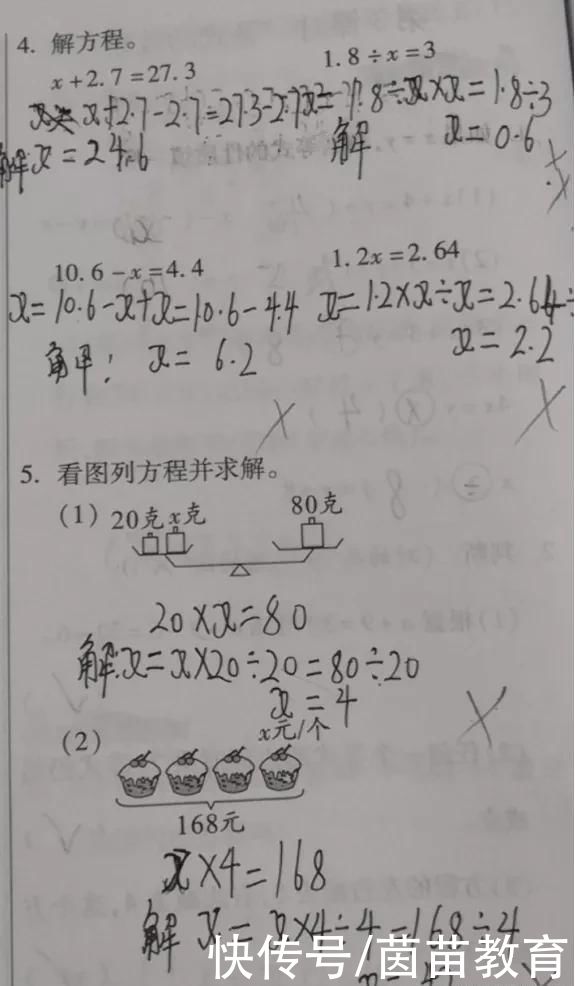 4. 解方程。
x+2.7=27.3
1.8÷x=3
x+2.7-2.7=27.3-2.7
1.8÷x×x=1.8÷3
解x=24.6
解 x=0.6
10.6-x=4.4
1.2x=2.64
x=10.6-x+x=10.6-4.4
x=1.2×x÷x=2.64÷
解: x=6.2
x=2.2
5. 看图列方程并求解。
(1) 20克 x克 80克
20×x=80
解:x=x×20÷20=80÷20
x=4
(2)
x元/个
168元
x×4=168
解 x=x×4÷4=168÷4
快传号/茵苗教育